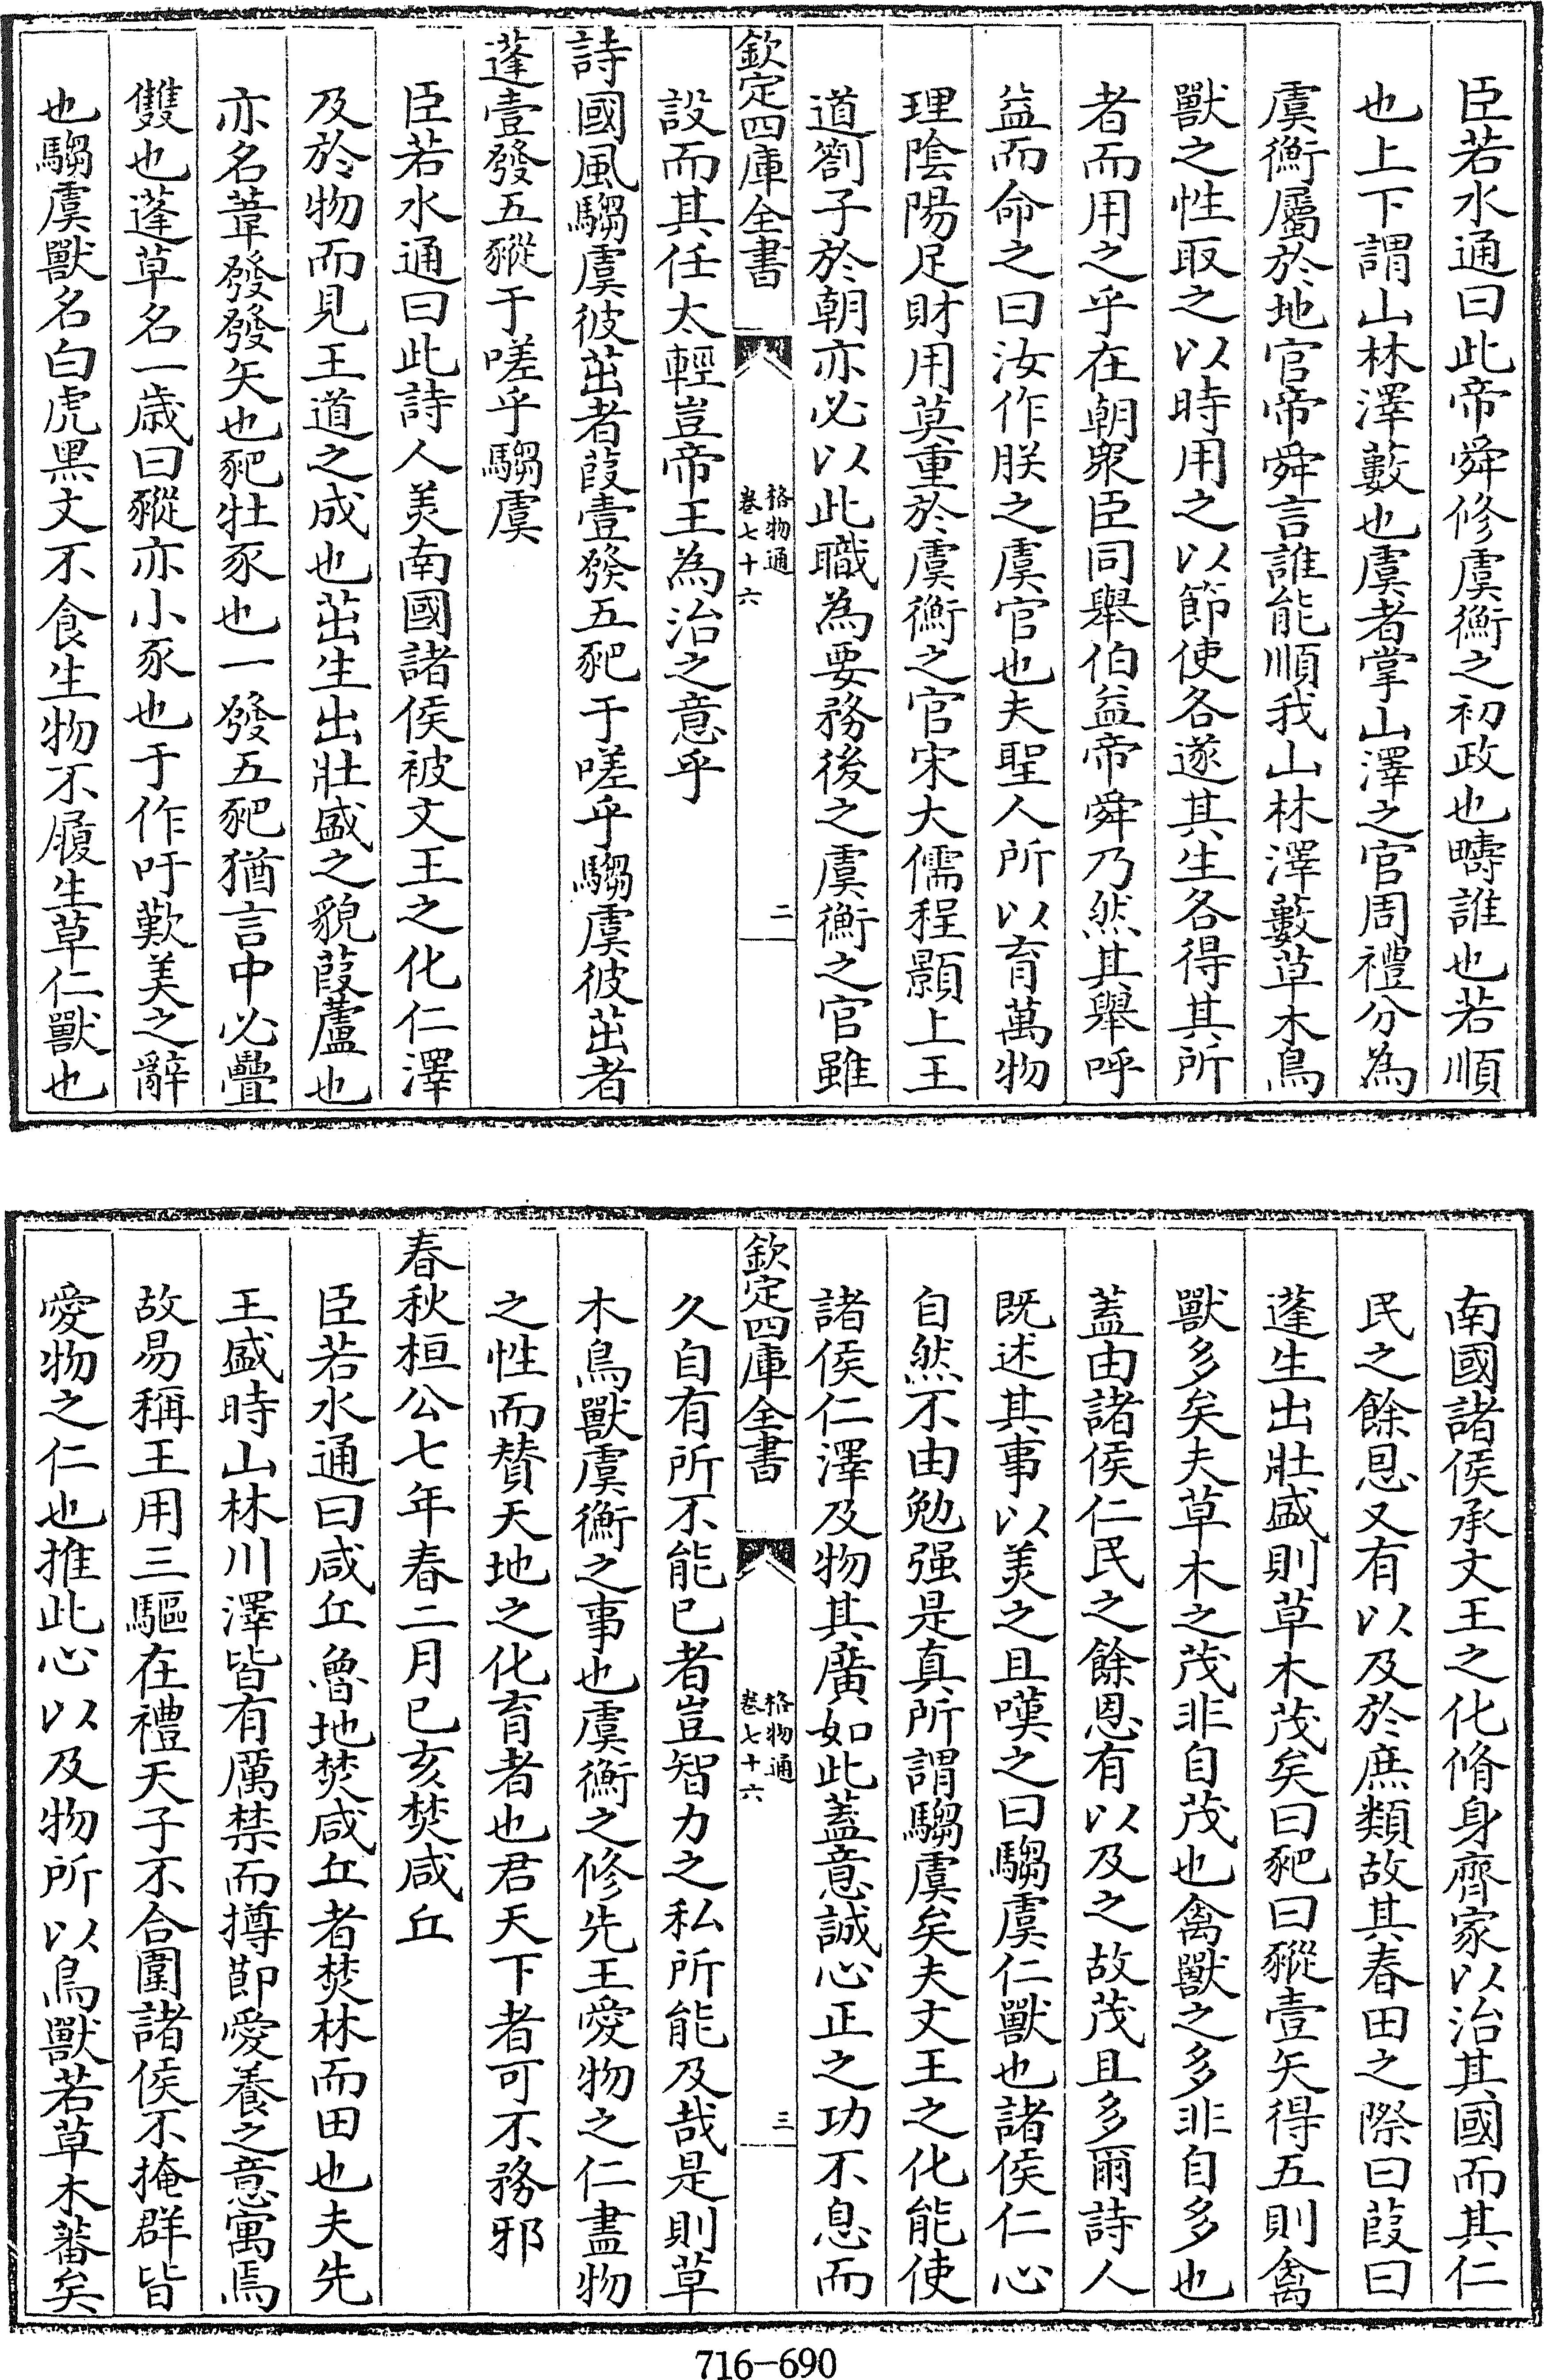 臣若水通曰此帝舜修虞衡之初政也疇誰也若順
也上下謂山林澤藪也虞者掌山澤之官周禮分為
虞衡屬於地官帝舜言誰能順我山林澤藪草木鳥
獸之性取之以時用之以節使各遂其生各得其所
者而用之乎在朝衆臣同舉伯益帝舜乃然其舉呼
益而命之曰汝作朕之虞官也夫聖人所以育萬物
理陰陽足財用莫重於虞衡之官宋大儒程顥上王
道劄子於朝亦必以此職為要務後之虞衡之官雖
欽定四庫全書
格物通
卷七十六
二
設而其任太輕豈帝王為治之意乎
詩國風騶虞彼茁者葭壹發五豝于嗟乎騶虞彼茁者
蓬壹發五豵于嗟乎騶虞
臣若水通曰此詩人美南國諸侯被文王之化仁澤
及於物而見王道之成也茁生出壯盛之貌葭蘆也
亦名葦發發矢也豝牡豕也一發五豝猶言中必疊
雙也蓬草名一歲曰豵亦小豕也于作吁歎美之辭
也騶虞獸名白虎黑文不食生物不履生草仁獸也
南國諸侯承文王之化脩身齊家以治其國而其仁
民之餘恩又有以及於庶類故其春田之際曰葭曰
蓬生出壯盛則草木茂矣曰豝曰豵壹矢得五則禽
獸多矣夫草木之茂非自茂也禽獸之多非自多也
蓋由諸侯仁民之餘恩有以及之故茂且多爾詩人
既述其事以美之且嘆之曰騶虞仁獸也諸侯仁心
自然不由勉强是真所謂騶虞矣夫文王之化能使
諸侯仁澤及物其廣如此蓋意誠心正之功不息而
欽定四庫全書
格物通
卷七十六
三
久自有所不能已者豈智力之私所能及哉是則草
木鳥獸虞衡之事也虞衡之修先王愛物之仁盡物
之性而贊天地之化育者也君天下者可不務邪
春秋桓公七年春二月己亥焚咸丘
臣若水通曰咸丘魯地焚咸丘者焚林而田也夫先
王盛時山林川澤皆有厲禁而撙節愛養之意寓焉
故易稱王用三驅在禮天子不合圍諸侯不掩群皆
愛物之仁也推此心以及物所以鳥獸若草木蕃矣
716-690